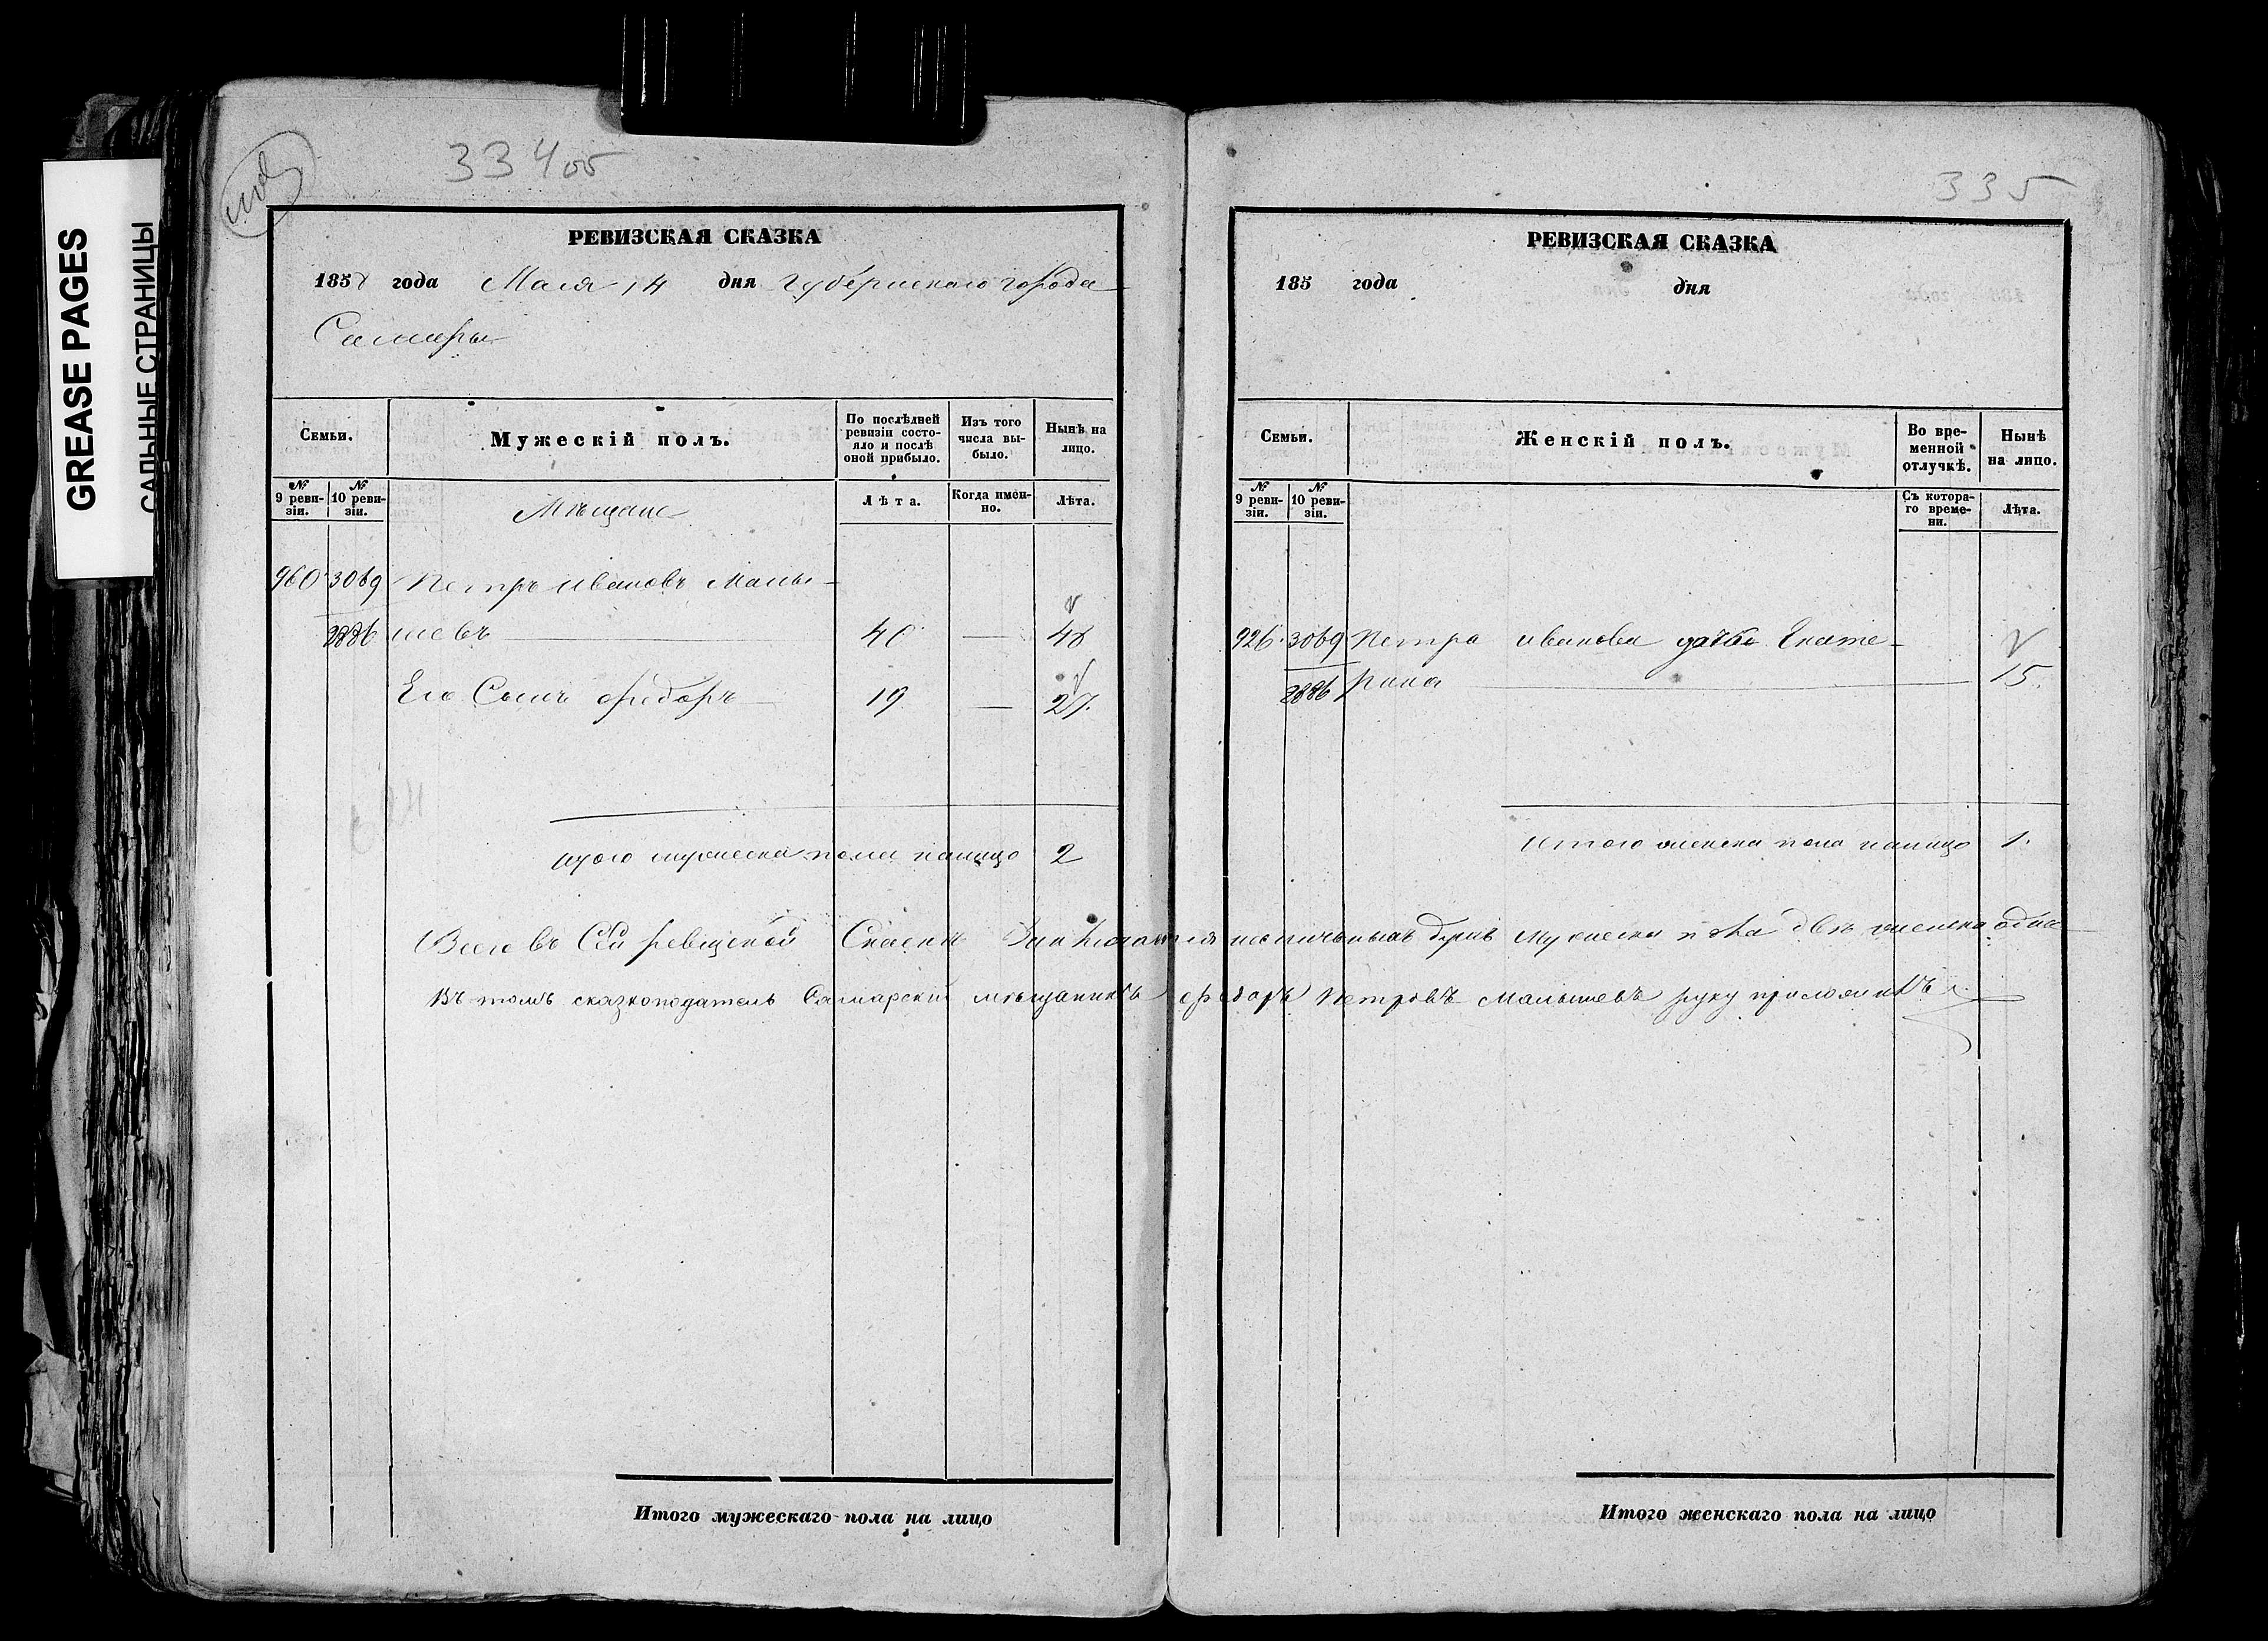 GREASE PAGES
САЛЬНЫЕ СТРАНИЦЫ
334 об
РЕВИЗСКАЯ СКАЗКА
1858 года Маія 14 дня Губернскаго города
Самары
Семьи.
Мужескій полъ.
По послѣдней ревизіи состо-
яло и послѣ
оной прибыло.
Изъ того
числа вы-
было.
Нынѣ на
лицо.
№
9 реви-
зіи.
№
10 реви-
зіи.
Мѣщане
Лѣта.
Когда имен-
но.
Лѣта.
960 3069 Петръ Ивановъ Малы-
2886 шевъ 40 — 48
Его Сынъ Ѳедоръ 19 — 27.
Итого мужеска пола налицо 2
335
РЕВИЗСКАЯ СКАЗКА
185 года дня
Семьи.
Женскій полъ.
Во вре-
менной
отлучкѣ.
Нынѣ
на лицо.
№
9 реви-
зіи.
№
10 реви-
зіи.
Съ котора-
го време-
ни.
Лѣта.
926. 3069 Петра Иванова дочь Екате-
2886 рина 15.
Итого женска пола налицо 1.
Всего въ Сей ревизской Сказкѣ Заключается наличныхъ душъ Мужеска пола двѣ женска одна
Въ томъ сказкоподатель Самарскій мѣщанинъ Ѳедоръ Петровъ Малышевъ руку приложилъ
Итого мужескаго пола на лицо
Итого женскаго пола на лицо